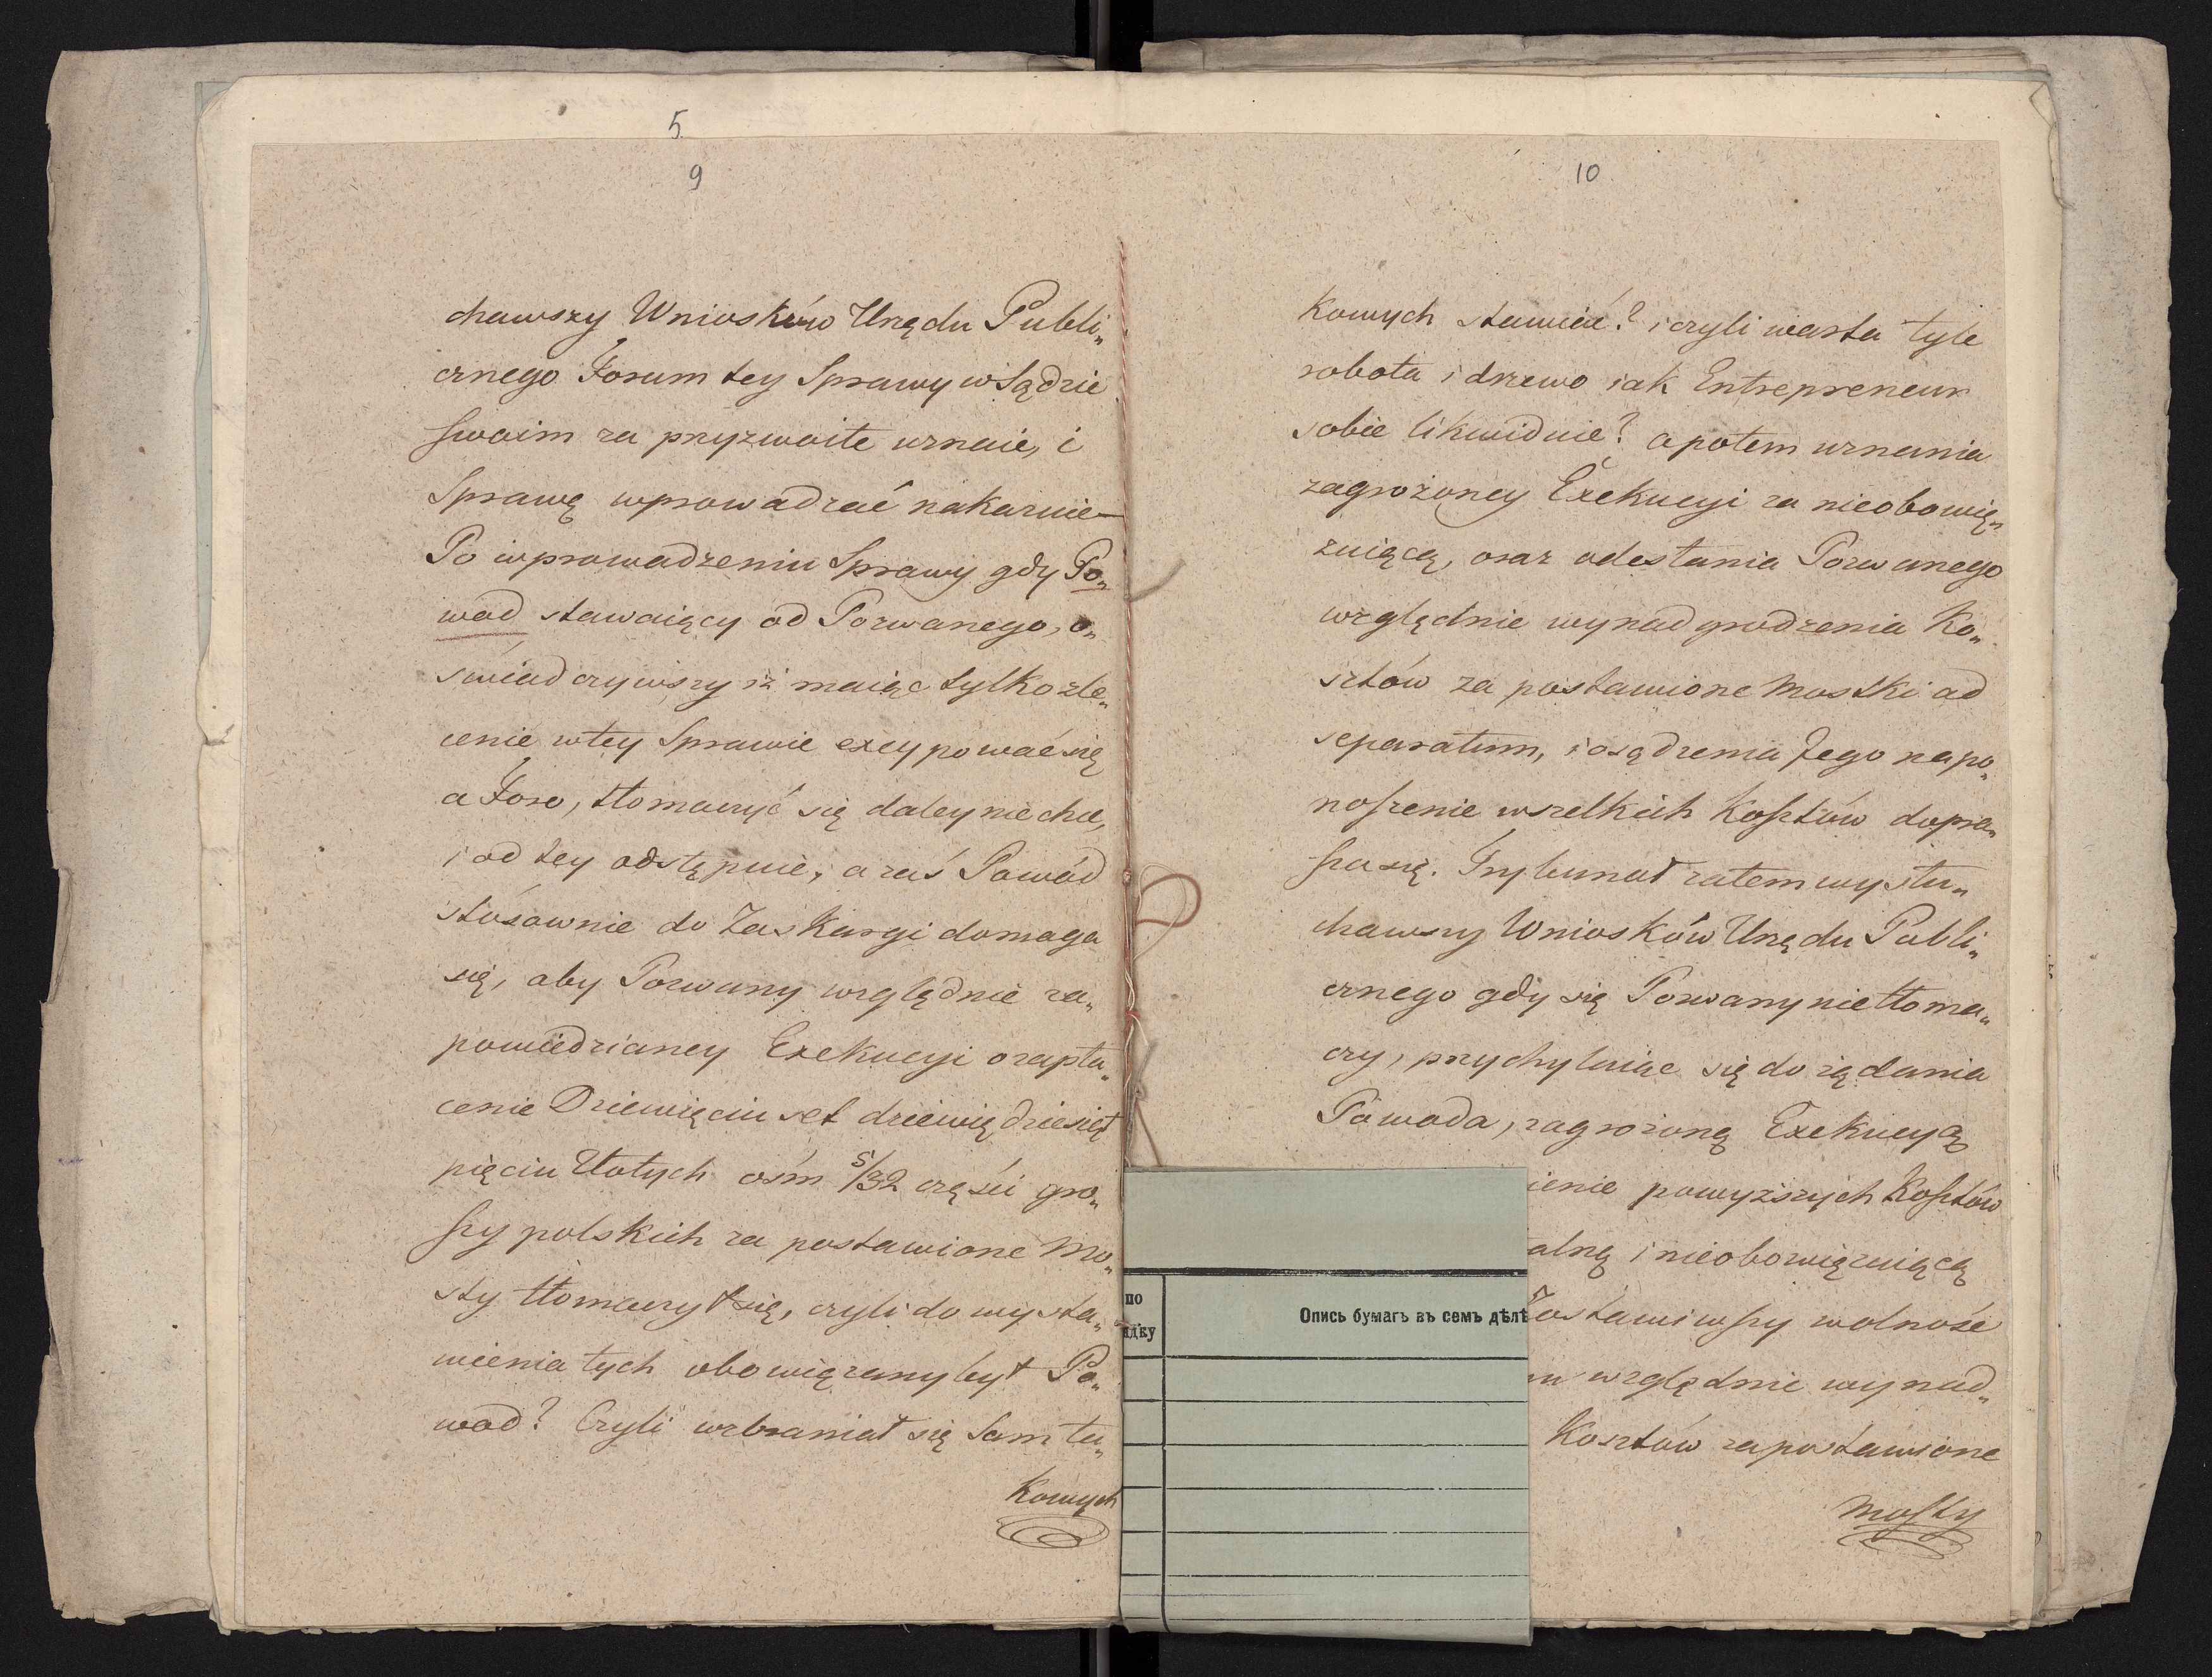 5
9
chawszy Wniosków Urzędu Publi„
cznego Forum tey Sprawy w Sądzie
swoim za przyzwoite uznaie, i
Sprawę wprowadzać nakazuie—
Po wprowadzeniu Sprawy gdy Po„
wod stawaiący od Pozwanego, o„
świadczywszy iż maiąc tylko zle„
cenie w tey Sprawie excypować się
a Foro, tłomaczyć się daley nie chce,
i od tey odstępuie, a zaś Powód
stósownie do Zaskargi domaga
się, aby Pozwany względnie za„
powiedzianey Exekucyi o zapła„
cenie Dziewięciu set dziewiędziesiąt
pięciu Złotych ośm 5/32 części gro„
szy polskich za postawione Mo„
sty tłomaczył się, czyli do wysta„
wienia tych obowiązany był Po„
wod? Czyli wzbraniał się Sam ta„
kowych
10
kowych stawiać? i czyli warta tyle
robota i drzewo iak Entrepreneur
sobie likwiduie? a potem uznania
zagrożoney Exekucyi za nieobowią„
zuiącą, oraz odesłania Pozwanego
względnie wynadgrodzenia Ko„
sztów za postawione Mostki ad
separatum, i osądzenia Jego na po„
noszenie wszelkich Kosztów dopra„
sza się. Trybunał zatem wysłu„
chawszy Wniosków Urzędu Publi„
cznego gdy się Pozwany nie tłoma„
czy, przychylaiąc się do żądania
Powoda, zagrożoną Exekucyą
ienie powyższych Kosztów
alną i nieobowiązuiącą
Zostawiwszy wolność
mu względnie wynad„
Kosztów za postawione
Mosty
по
ядку
Опись бумагъ въ семъ дѣлѣ